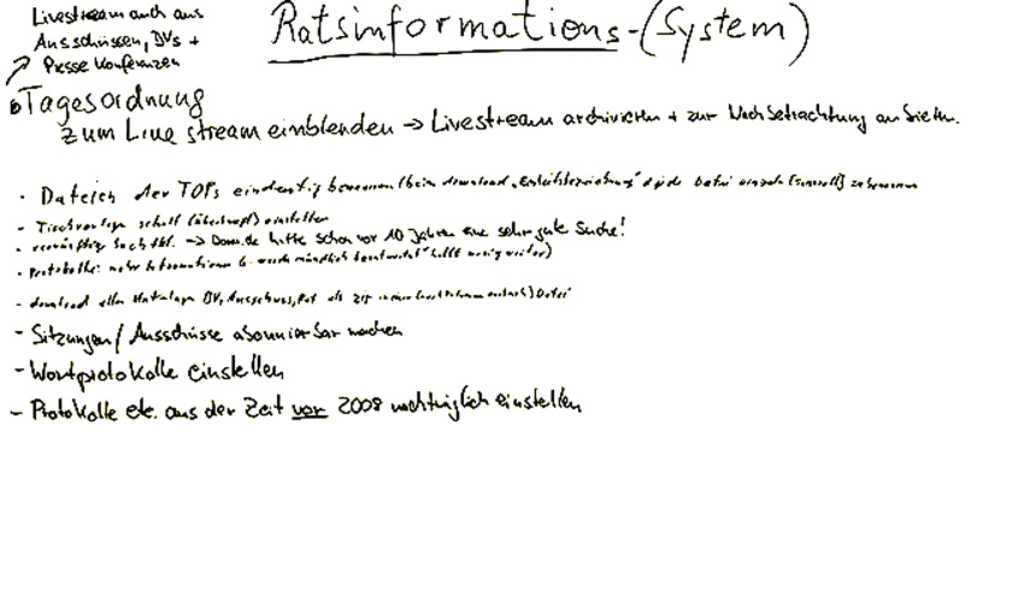 Livestream auch aus
Ausschüssen, BVs +
Presse Konferenzen
Ratsinformations-(System)
Tagesordnung
zum Livestream einblenden → Livestream archivieren + zur Nachbetrachtung anbieten.
· Dateien der TOPs eindeutig benennen (beim download
- Tischvorlagen schnell (überhaupt) einstellen
· vernünftige Suchfkt. → Dom.de hatte schon vor 10 Jahren eine sehr gute Suche!
· Protokolle: mehr Informationen mündlich beantwortet" hilft wenig weiter)
- download aller BV, Ausschuss, Rat als zip Datei
- Sitzungen/Ausschüsse abonnierbar machen
- Wortprotokolle einstellen
- Protokolle etc. aus der Zeit vor 2008 nachträglich einstellen